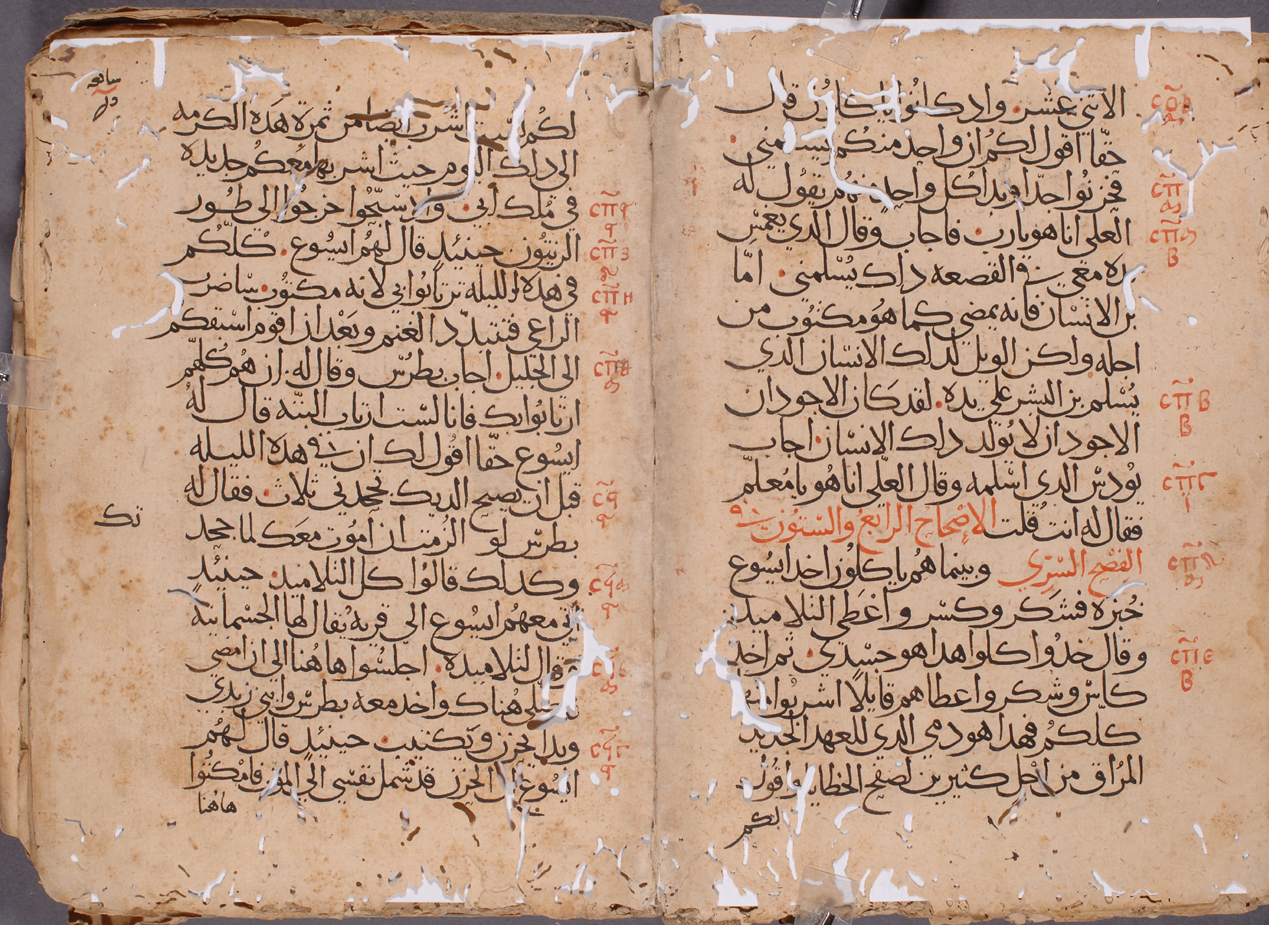 الاثني عشر. واد كانوا ياكلون قال
حقا اقول لكم ان واحد منكم يسلمني.
فحزنوا جدا وبدا كل واحد منهم يقول له
العلي انا هو يارب. فاجاب وقال الدي يغمس
يده معي في القصعه داك يسلمني. امّا
بن الانسان فانه يمضي كما هو مكتوب من
اجله ولكن الويل لداك الانسان الدي
يسلم بن البشر علي يده. لقد كان الاجود ان
الاجود ان لا يولد داك الانسان اجاب
يودس الدي اسلمه وقال العلّي انا هو يا معلم
فقال له انت قلت الاصحاح الرابع والستون في
الفصح السّري وبينما هم ياكلون اخد ايسوع
خبزه فشكر وكسر واعطي التلاميد
وقال خدوا كلوا هدا هو جسدي. ثم اخد
كاس وشكر واعطاهم قايلًا اشربوا
كلكم فهدا هو دمي الدي للعهد الجديد
المراق من اجل كثيرين لصفح الخطايا واقول
لكم
لكم اشرب ايضا من ثمرة هده الكرمه
الى دلك اليوم حيث اشربها معكم جديده
في ملك ابي. واد سبّحوا خرجوا الي طور
الزيتون حينيدٍ قال لهم ايسوع. كلكم
في هده الليله ترتابوا بي لانه مكتوب. ساضرب
الراعي فتتبدد الغنم وبعد ان اقوم اسبقكم
الى الجليل. اجاب بطرس وقال له. ان هم كلهم
ارتابوا بك فانا لست ارتاب البتّه قال له
ايسوع حقّا اقول لك ان في هده الليله
قبل ان يصيح الديك تجحدني ثلاث. فقال له
بطرس لو الزمت ان اموت معك لما اجحد
وكدلك قالوا كل التلاميد. حينيدٍ
اتي معهم ايسوع الي قريه يقال لها الجسمانيه
وقال لتلاميده. اجلسوا هاهنا الي ان امضي
اصلي هناك واخد معه بطرس وابني زبدي
وبدا يحزن ويكتيب. حينيدٍ قال لهم
ايسوع ان الحزن قد شمل نفسي الي الموت فامكثوا
هاهنا